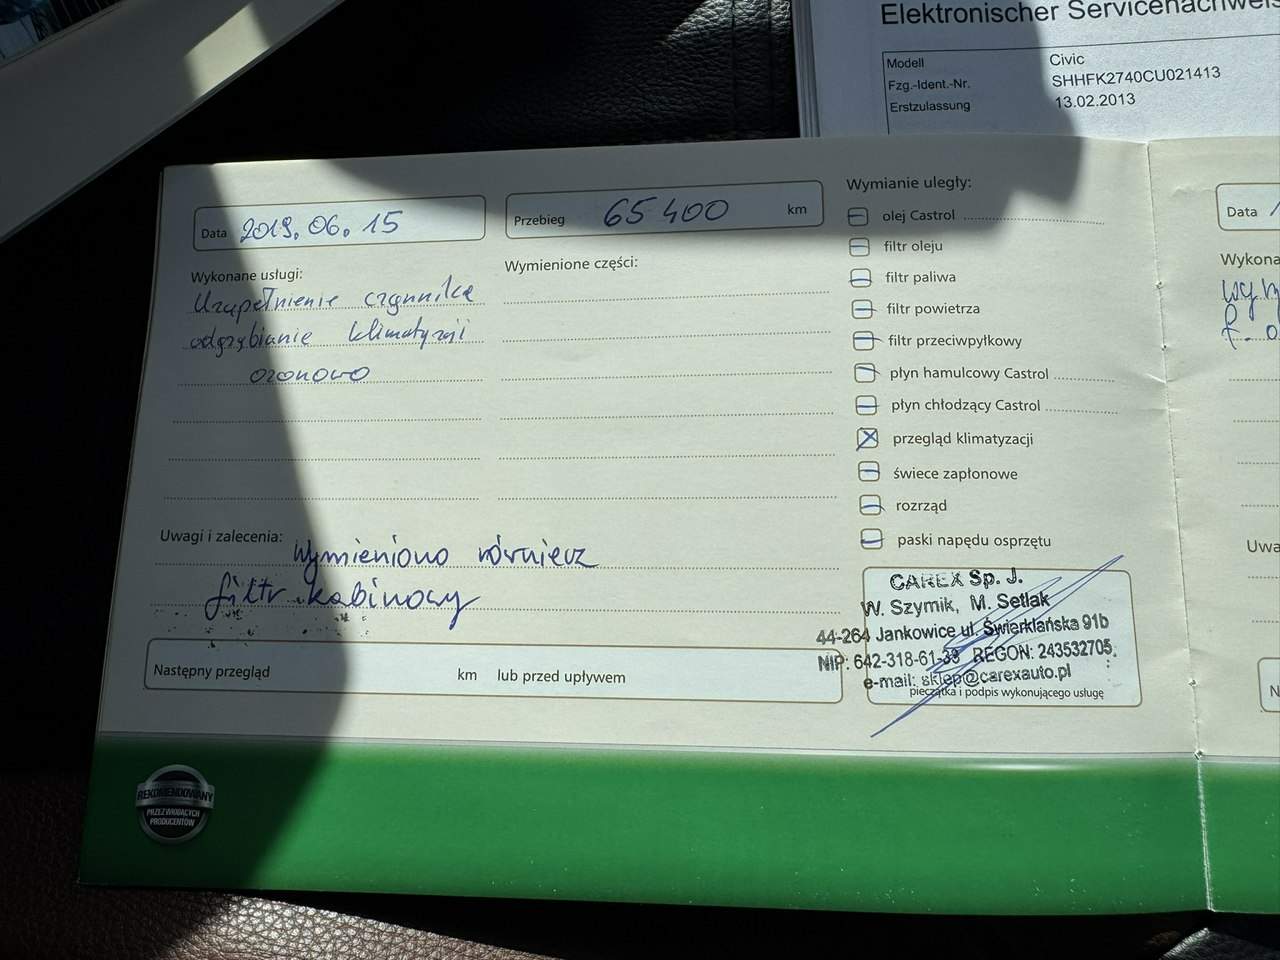 Elektronischer Servicenachweis
Modell Civic
Fzg.-Ident.-Nr. SHHFK2740CU021413
Erstzulassung 13.02.2013
Data 2019.06.15
Przebieg 65400 km
Wykonane usługi:
Uzupełnienie czynnika
odgrzybianie klimatyzacji
ozonowo
Wymienione części:
Wymianie uległy:
olej Castrol
filtr oleju
filtr paliwa
filtr powietrza
filtr przeciwpyłkowy
płyn hamulcowy Castrol
płyn chłodzący Castrol
przegląd klimatyzacji
świece zapłonowe
rozrząd
paski napędu osprzętu
Uwagi i zalecenia: Wymieniono również
filtr kabinowy
Następny przegląd km lub przed upływem
CAREX Sp. J.
W. Szymik, M. Setlak
44-264 Jankowice ul. Świerklańska 91b
NIP: 642-318-61-33 REGON: 243532705
e-mail: sklep@carexauto.pl
pieczątka i podpis wykonującego usługę
REKOMENDOWANY
PRZEZ WIODĄCYCH
PRODUCENTÓW
Data
Wykona
f. o
Uwa
N